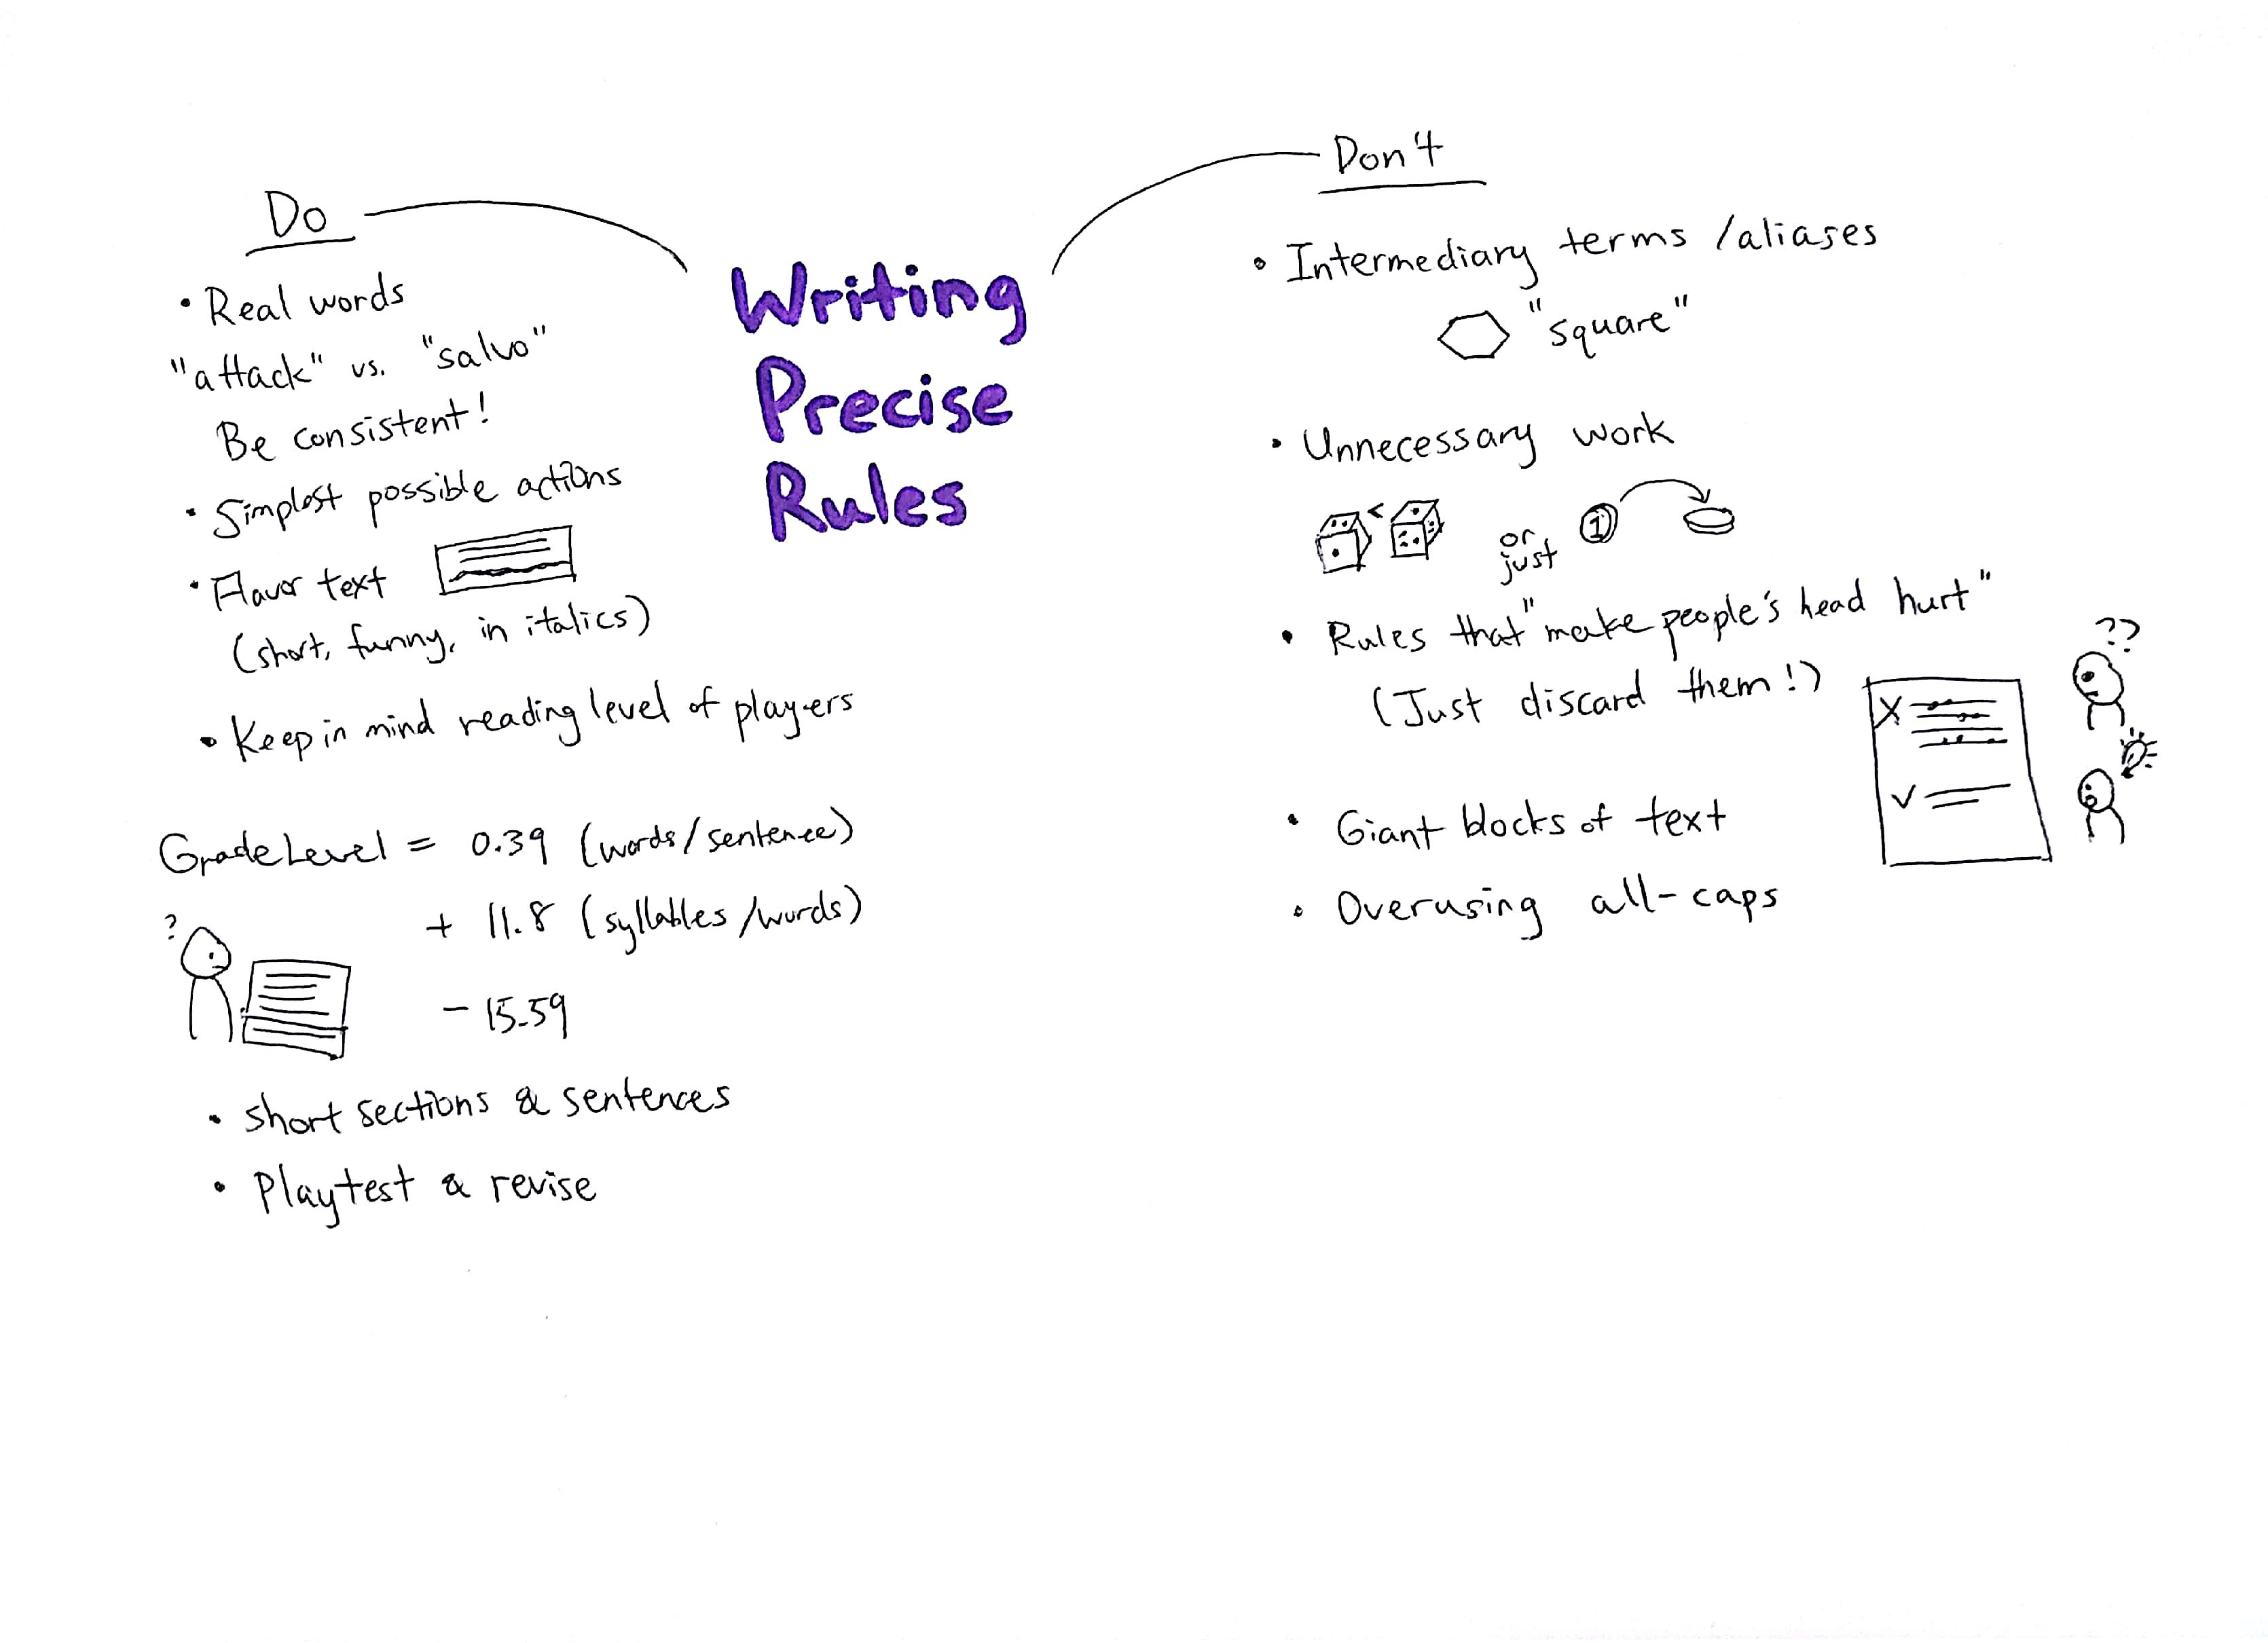 Writing
Precise
Rules
Do
• Real words
"attack" vs. "salvo"
Be consistent!
• Simplest possible actions
• Flavor text
(short, funny, in italics)
• Keep in mind reading level of players
Grade Level = 0.39 (words/sentence)
+ 11.8 (syllables/words)
- 15.59
?
• short sections & sentences
• Playtest & revise
Don't
• Intermediary terms /aliases
"square"
• Unnecessary work
< or
just
1
• Rules that "make people's head hurt"
(Just discard them!)
??
X
✓
• Giant blocks of text
• Overusing all-caps